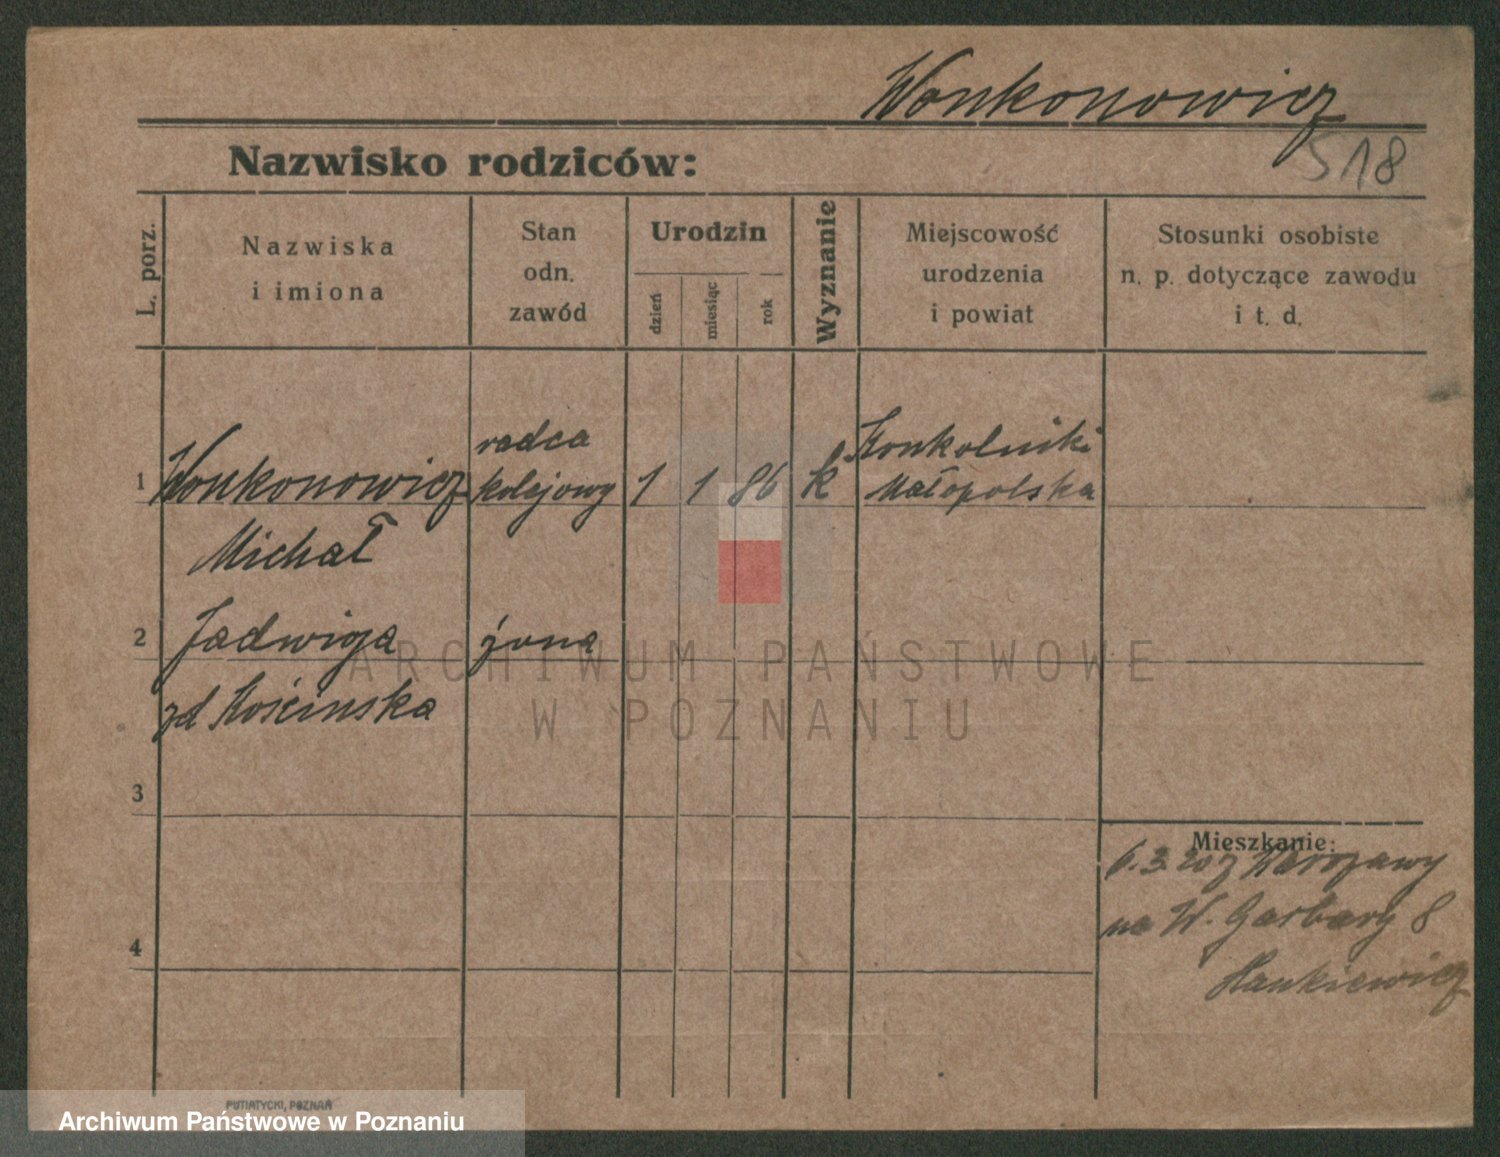 Wonkonowicz
518
Nazwisko rodziców:
L. porz.
Nazwiska
i imiona
Stan
odn.
zawód
Urodzin
dzień
miesiąc
rok
Wyznanie
Miejscowość
urodzenia
i powiat
Stosunki osobiste
n. p. dotyczące zawodu
i t. d.
radca
Konkolniki
1 Wonkonowicz kolejowy 1 1 86 k Małopolska
Michał
2 Jadwiga żona
zd Kościnska
3
Mieszkanie:
6.3.20 z Warszawy
na W. Garbary 8
4
Hankiewicz
PUTIATYCKI, POZNAŃ
ARCHIWUM PAŃSTWOWE
W POZNANIU
Archiwum Państwowe w Poznaniu